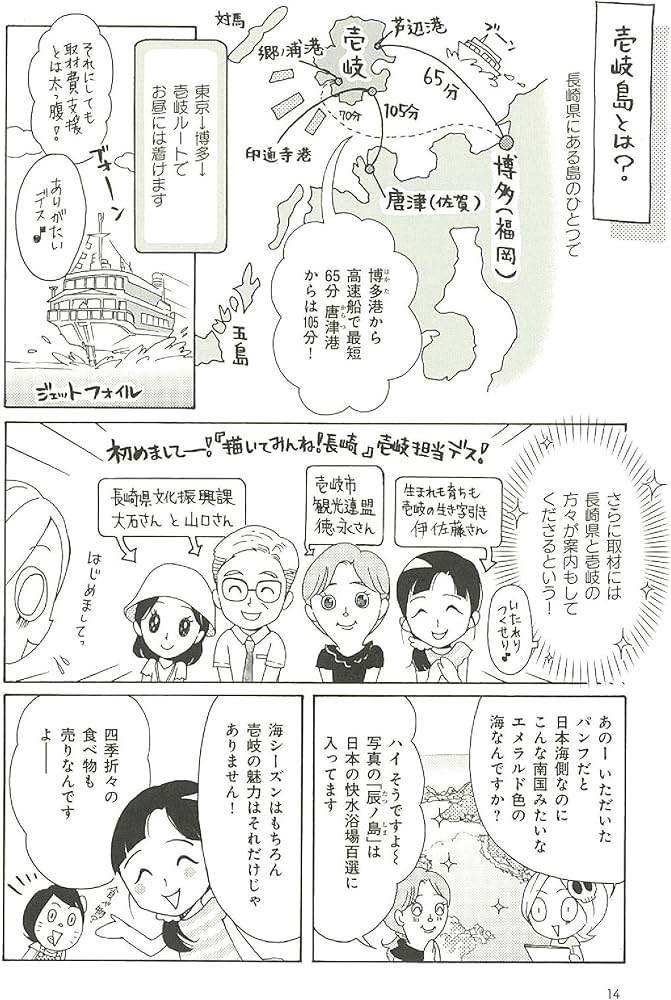 壱岐島とは？
長崎県にある島のひとつで
対馬
郷ノ浦港
壱岐
芦辺港
65分
105分
70分
印通寺港
唐津(佐賀)
博多(福岡)
五島
博多港から
はかた
高速船で最短
65分 唐津港
からつ
からは105分！
東京→博多→
壱岐ルートで
お昼には着けます
それにしても
取材費支援
とは太っ腹！
ブォーン
ありがたい
デス♪
ジェットフォイル
さらに取材には
長崎県と壱岐の
方々が案内もして
くださるという！
初めましてー！『描いてみんね！長崎』壱岐担当デス！
生まれも育ちも
壱岐の生き字引き
伊佐藤さん
壱岐市
観光連盟
徳永さん
長崎県文化振興課
大石さん と 山口さん
いたれり
つくせり♪
はじめましてっ
あのー いただいた
パンフだと
日本海側なのに
こんな南国みたいな
エメラルド色の
海なんですか？
ハイ そうですよ〜
写真の「辰ノ島」は
たつ しま
日本の快水浴場百選に
入ってます
海シーズンはもちろん
壱岐の魅力はそれだけじゃ
ありません！
四季折々の
食べ物も
売りなんです
よ――
14